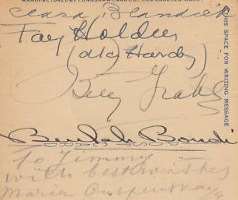 Clara Blandick
Fay Holden
(aka) Hardy)
Betty Grable
THIS SPACE FOR WRITING MESSAGE
Beulah Bondi
To Jimmy
with best wishes
Maria Ouspenskaya